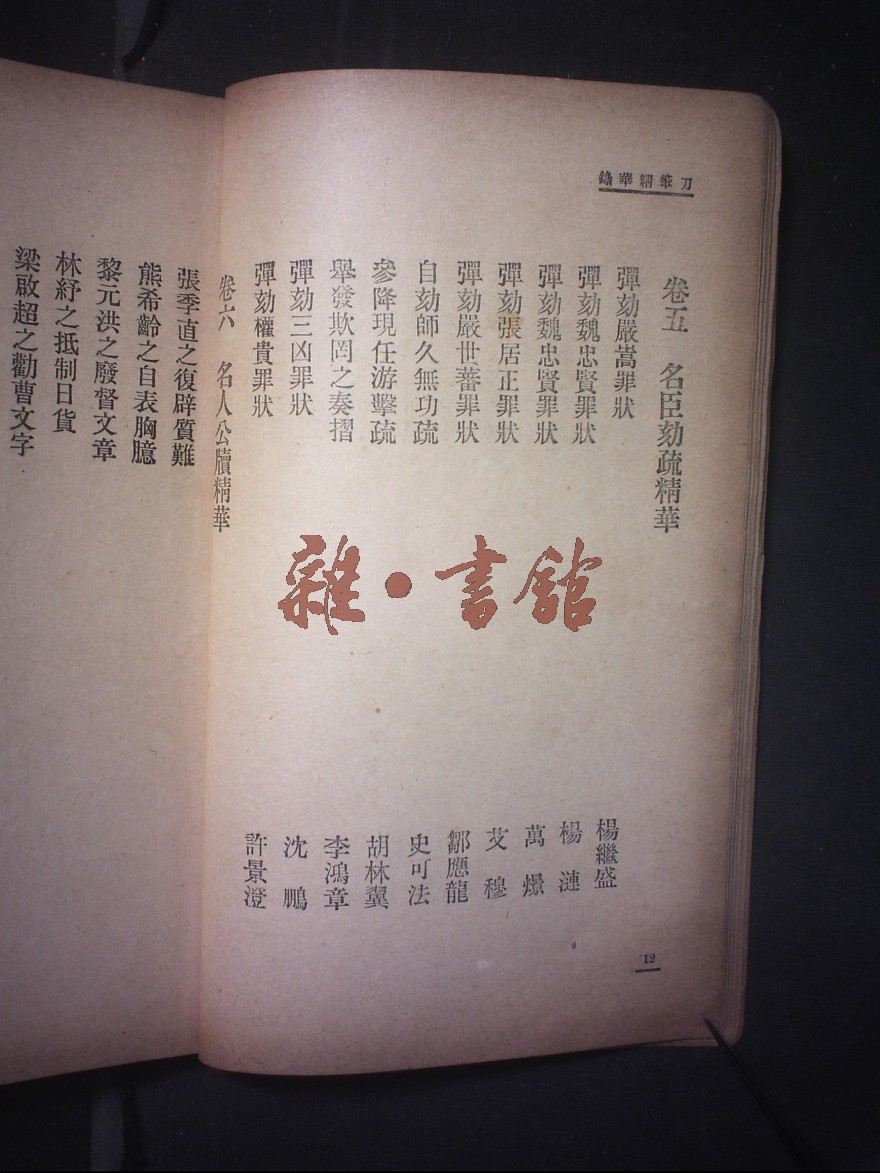 刀筆精華錄
卷五　名臣劾疏精華
彈劾嚴嵩罪狀　楊繼盛
彈劾魏忠賢罪狀　楊　漣
彈劾魏忠賢罪狀　萬　燝
彈劾張居正罪狀　艾　穆
彈劾嚴世蕃罪狀　鄒應龍
自劾師久無功疏　史可法
參降現任游擊疏　胡林翼
舉發欺罔之奏摺　李鴻章
彈劾三凶罪狀　沈　鵬
彈劾權貴罪狀　許景澄
卷六　名人公牘精華
12
張季直之復辟質難
熊希齡之自表胸臆
黎元洪之廢督文章
林紓之抵制日貨
梁啟超之勸曹文字
雜·書館